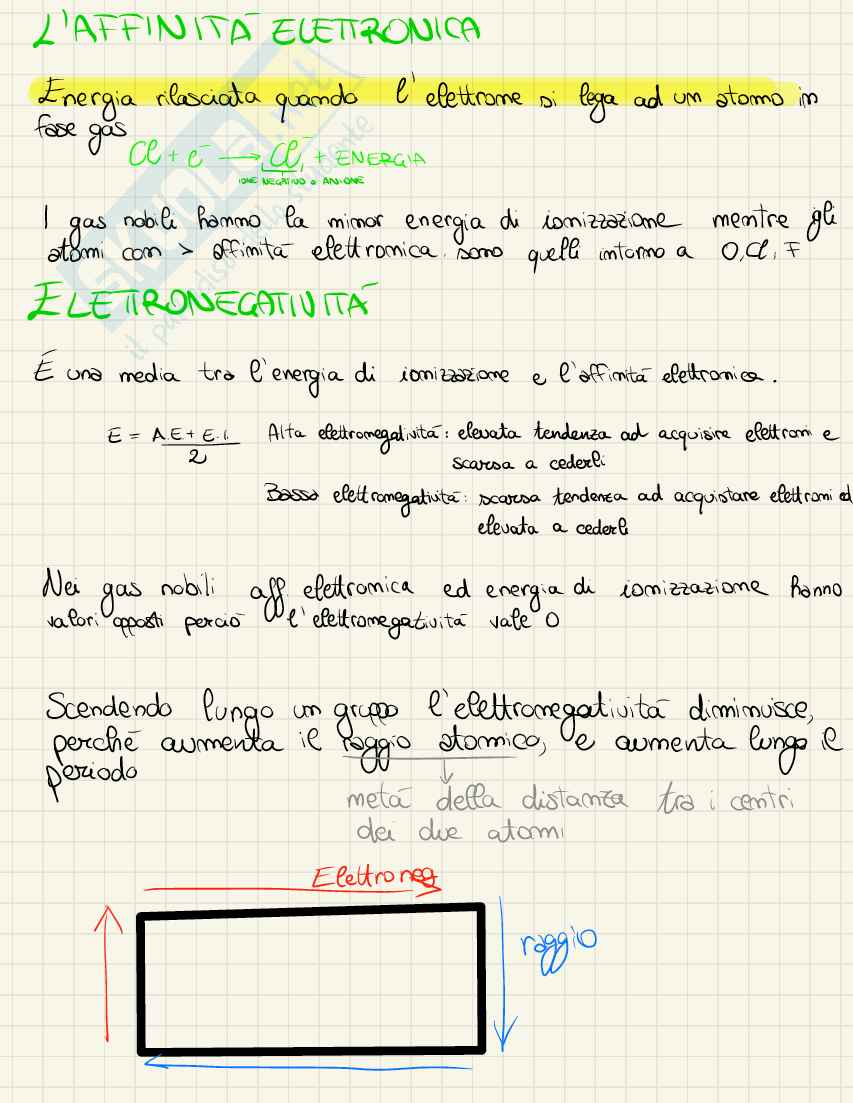 L'AFFINITÀ ELETTRONICA
Energia rilasciata quando l'elettrone si lega ad un atomo in
fase gas
Cl + e⁻ → Cl⁻ + ENERGIA
IONE NEGATIVO o ANIONE
I gas nobili hanno la minor energia di ionizzazione mentre gli
atomi con > affinità elettronica sono quelli intorno a O, Cl, F
ELETTRONEGATIVITÀ
È una media tra l'energia di ionizzazione e l'affinità elettronica.
E = A.E + E.I. / 2
Alta elettronegatività: elevata tendenza ad acquisire elettroni e
scarsa a cederli
Bassa elettronegatività: scarsa tendenza ad acquistare elettroni ed
elevata a cederli
Nei gas nobili aff elettronica ed energia di ionizzazione hanno
valori opposti perciò l'elettronegatività vale 0
Scendendo lungo un gruppo l'elettronegatività diminuisce,
perché aumenta il raggio atomico, e aumenta lungo il
periodo
metà della distanza tra i centri
dei due atomi
Elettroneg
raggio